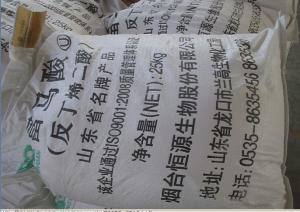 富马酸
(反丁烯二酸)
山东省名牌产品
该企业通过ISO9001:2008质量管理体系认证
净含量(NET): 25kg
烟台恒源生物股份有限公司
地址:山东省龙口市兰高生物化工园
电话: 0535-8635466